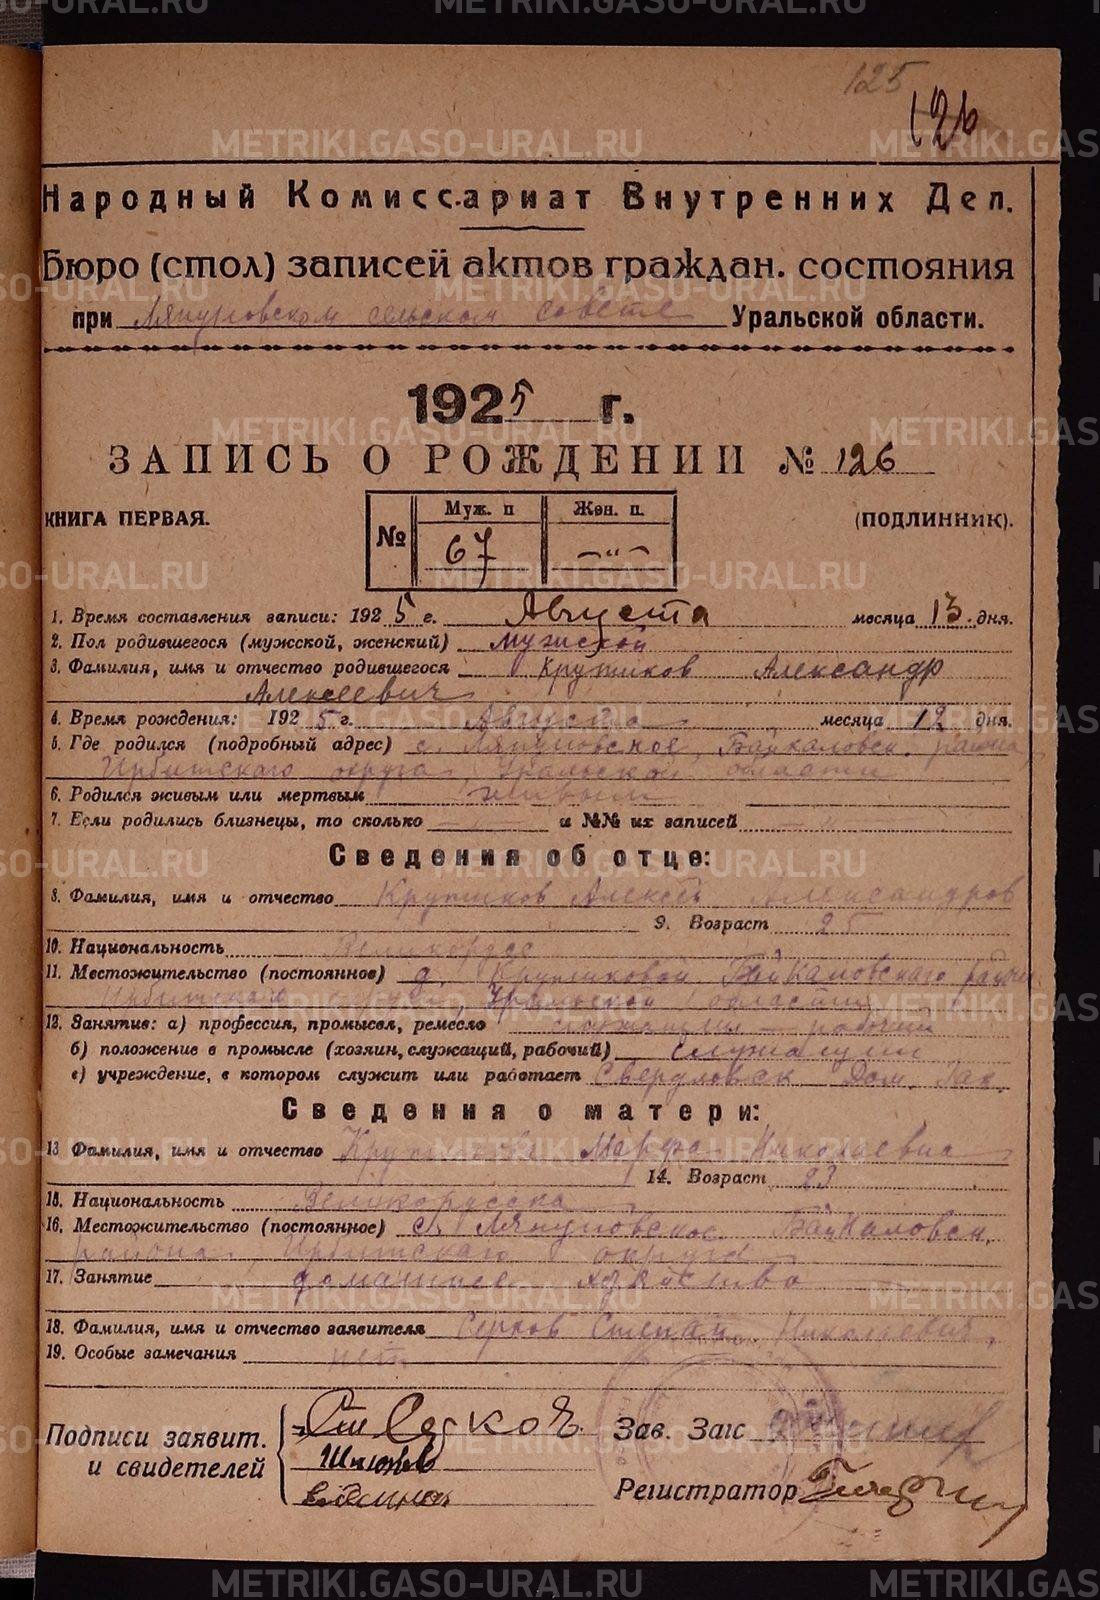 125
126
Народный Комиссариат Внутренних Дел.
Бюро (стол) записей актов граждан. состояния
при Ляпуновском сельском совете Уральской области.
1925 г.
ЗАПИСЬ О РОЖДЕНИИ № 126
КНИГА ПЕРВАЯ. (ПОДЛИННИК).
№ Муж. п Жен. п.
67 —"—
1. Время составления записи: 1925 г. Августа месяца 13 дня.
2. Пол родившегося (мужской, женский) мужской
3. Фамилия, имя и отчество родившегося Крутиков Александр
Алексеевич
4. Время рождения: 1925 г. Августа месяца 12 дня.
5. Где родился (подробный адрес) с. Ляпуновское, Байкаловск. района
Ирбитского округа, Уральской области
6. Родился живым или мертвым живым
7. Если родились близнецы, то сколько — и №№ их записей "
Сведения об отце:
8. Фамилия, имя и отчество Крутиков Алексей Александров
9. Возраст 25
10. Национальность Великорусс
11. Местожительство (постоянное) д. Крутиковой Байкаловского района
Ирбитского округа, Уральской области
12. Занятие: а) профессия, промысел, ремесло рабочий
б) положение в промысле (хозяин, служащий, рабочий) служащий
в) учреждение, в котором служит или работает Свердловск Дом. Зак.
Сведения о матери:
13 Фамилия, имя и отчество Крутикова Марфа Николаевна
14. Возраст 23
15. Национальность Великорусска
16. Местожительство (постоянное) с. Ляпуновское Байкаловск.
района, Ирбитского округа
17. Занятие домашнее хозяйство
18. Фамилия, имя и отчество заявителя Серков Степан Николаевич.
19. Особые замечания нет
Подписи заявит. Ст Серков Зав. Загс
и свидетелей
Регистратор
METRIKI.GASO-URAL.RU